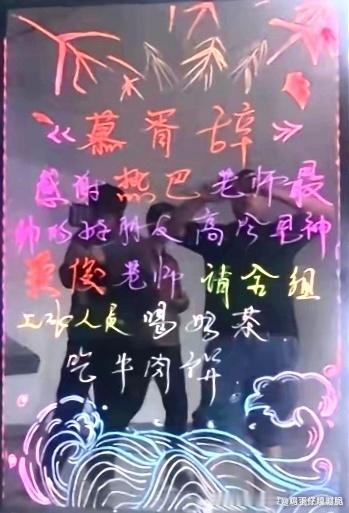 《慕胥辞》
感谢热巴老师最
帅的好朋友高冷男神
俊老师 请全组
工作人员喝奶茶
吃牛肉饼